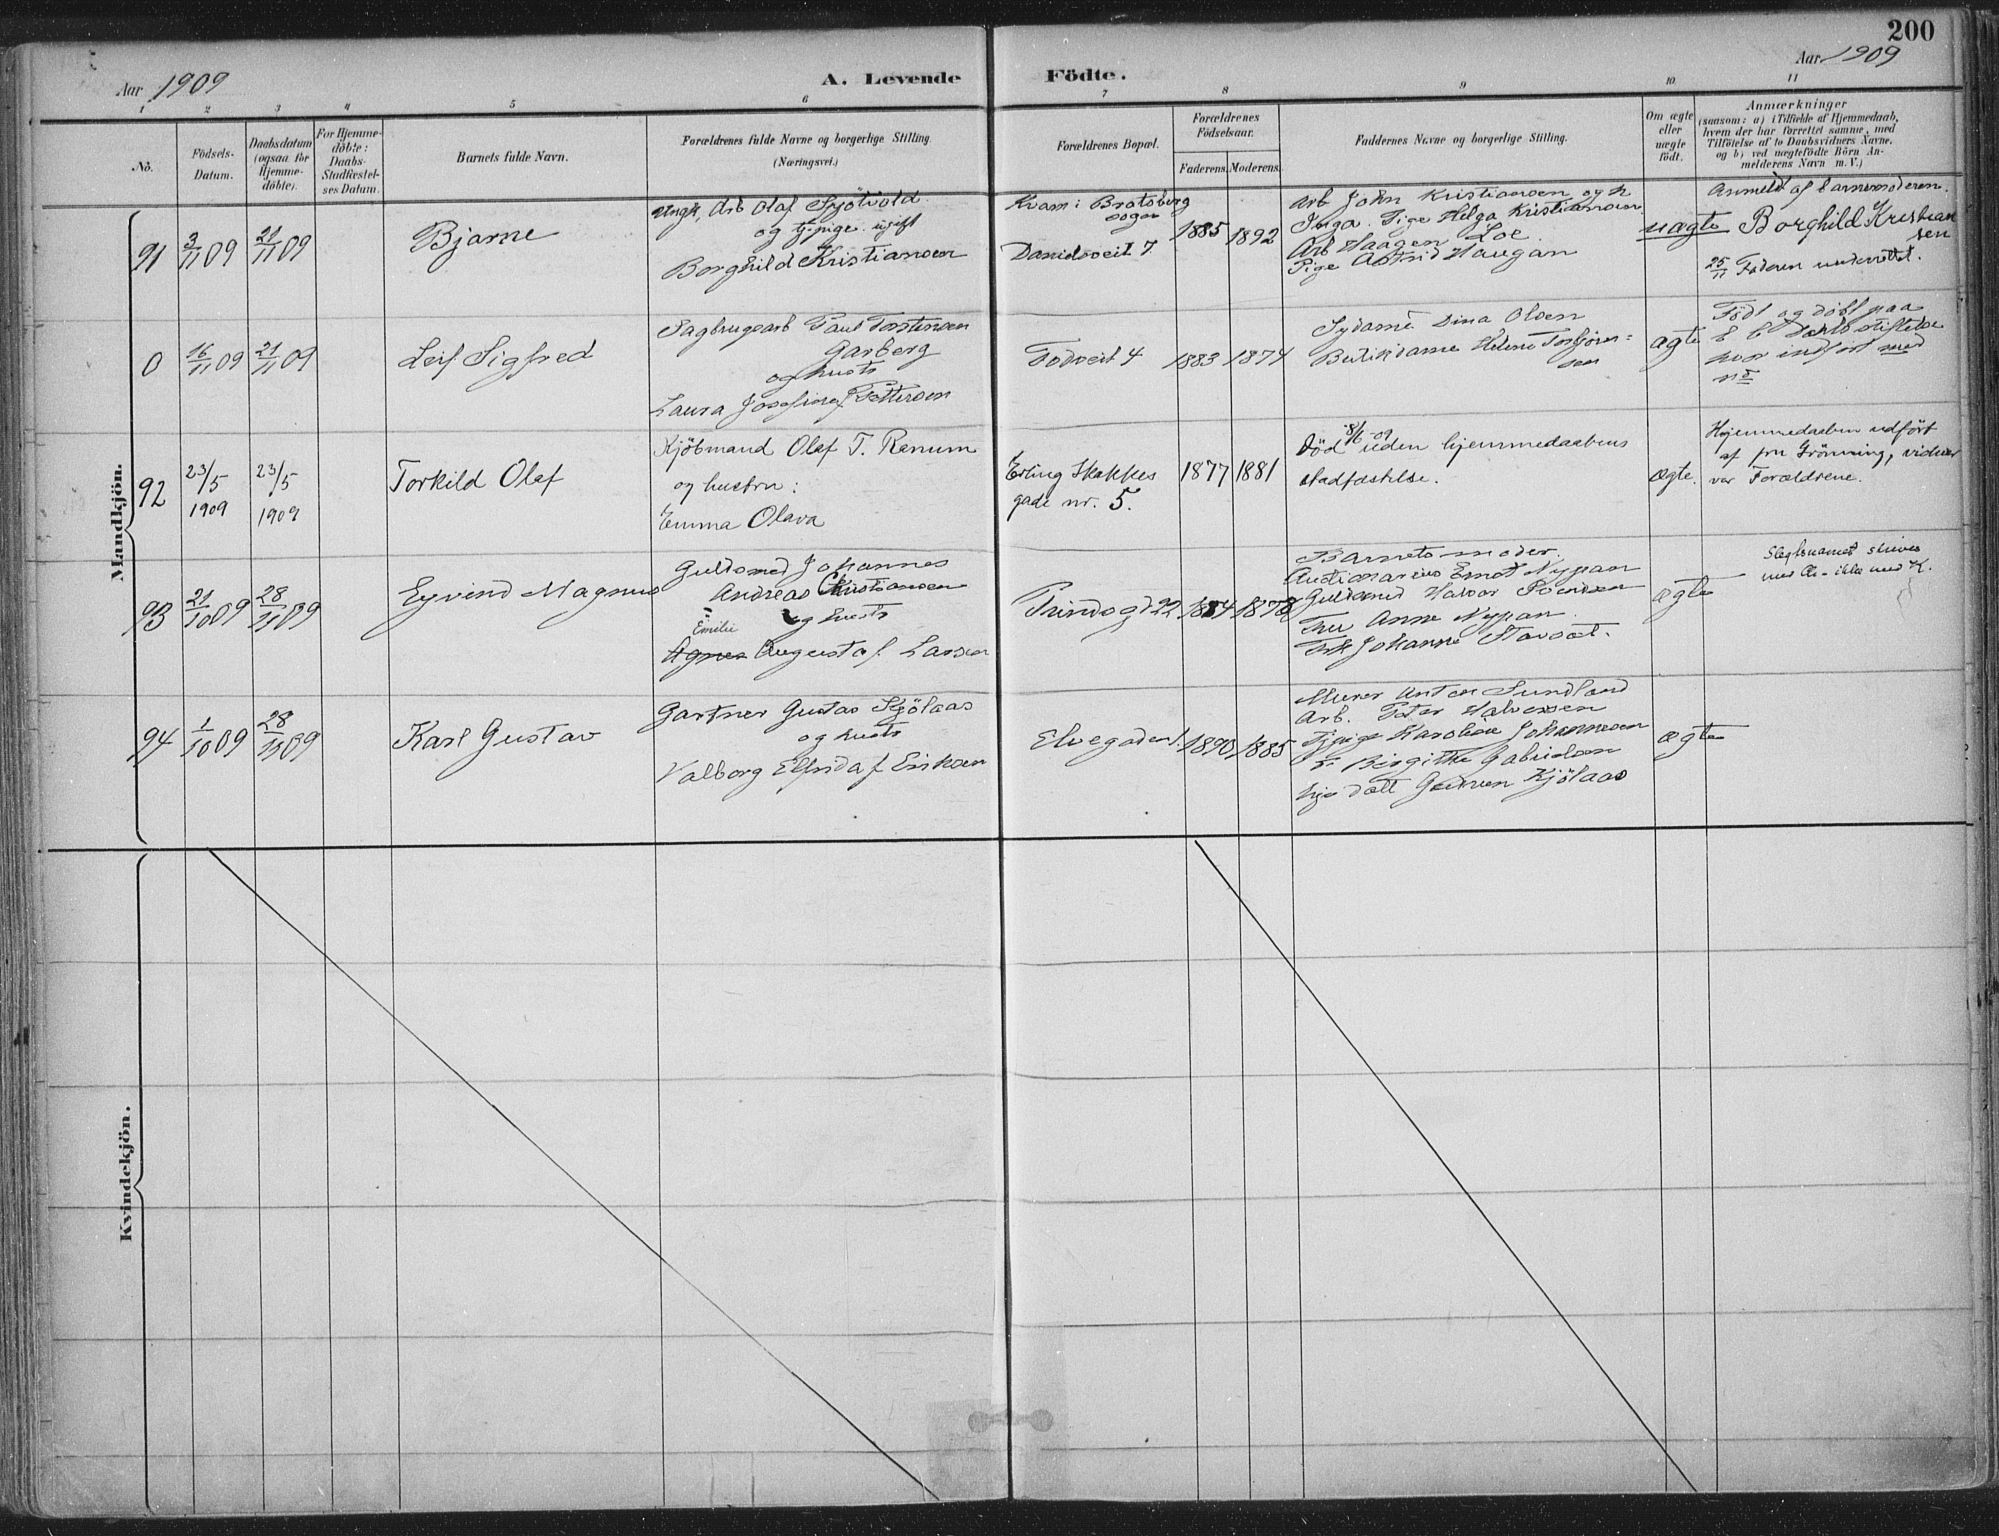 200
Aar 1909
A. Levende
Födte.
Aar 1909
1 2 3 4 5 6 7 8 9 10 11
No.
Födsels-
Datum.
Daabsdatum
(ogsaa for
Hjemme-
döbte).
For Hjemme-
döbte:
Daabs-
Stadfæstel-
ses Datum.
Barnets fulde Navn.
Forældrenes fulde Navne og borgerlige Stilling
(Næringsvei.)
Forældrenes Bopæl.
Forældrenes
Födselsaar.
Faderens.
Moderens.
Faddernes Navne og borgerlige Stilling.
Om ægte
eller
uægte
födt.
Anmærkninger
(saasom: a) i Tilfælde af Hjemmedaab,
hvem der har forrettet samme, med
Tilföielse af to Daabsvidners Navne,
og b) ved uægtefödte Börn An-
melderens Navn m. V.)
Mandkjön.
91
3/11 09
21/11 09
Bjarne
Ungk, Arb Olaf Sjötvold
og tj.pige ugift
Borghild Kristiansen
Kvam i Bratsberg
sogn
Danielsveit 7
1885
1892
Arb John Kristiansen og h
Inga. Pige Helga Kristiansen
Arb Haagen Loe
Pige Astrid Haugan
uægte
Anmeldt af barnemoderen.
Borghild Kristian
sen
25/11 Faderen underrettet.
0
16/11 09
21/11 09
Leif Sigfred
Sagbrugsarb Paul Torstensen
Garberg
og hustr
Laura Josefine f Pettersen
Fodveit 4
1883
1874
Sydame Dina Olsen
Butikdame Helene Torbjörn-
sen
ægte
Född og döbt paa
E C Dahls stiftelse
hvor indfört med
no
92
23/5
1909
23/5
1909
Torkild Olaf
Kjöbmand Olaf T. Renum
og hustru:
Emma Olava
Erling Skakkes
gade nr. 5.
1877
1881
8/6 09
Död uden hjemmedaabens
stadfæstelse.
ægte.
Hjemmedaaben udfört
af fru Grönning, vidner
var Forældrene.
93
21/10 09
28/11 09
Eyvind Magnus
Guldsmed Johannes
Andreas Christiansen
og hustr
Emilie
Agnes Augusta f. Larsen
Prindsg 22
1884
1878
Barnets moder.
Auctionarius Ernst Nypan
Guldsmed Halvor
Fru Anne Nypan
Frk Johanne
ægte
Slegtsnavnet skrives
med Ch- ikke med K.
94
1/10 09
28/11 09
Karl Gustav
Gartner Gustav Kjölaas
og hustr
Valborg Elfrida f Eriksen
Elvegaden 1.
1890
1885
Murer Anton Sundland
Arb. Peter Halvorsen
Tjpige Karoline Johannesen
Fr Birgitte Gabrielsen
Kjölaas
ægte
Kvindekjön.